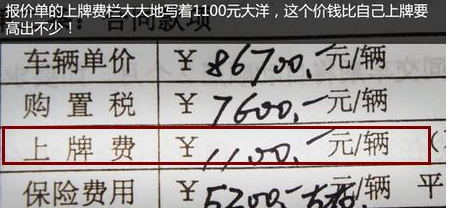 报价单的上牌费栏大大地写着1100元大洋，这个价钱比自己上牌要
高出不少！
车辆单价 ￥86700.-元/辆
购置税 ￥7600.-元/辆
上牌费 ￥1100.-元/辆
保险费用 ￥5200.- 平